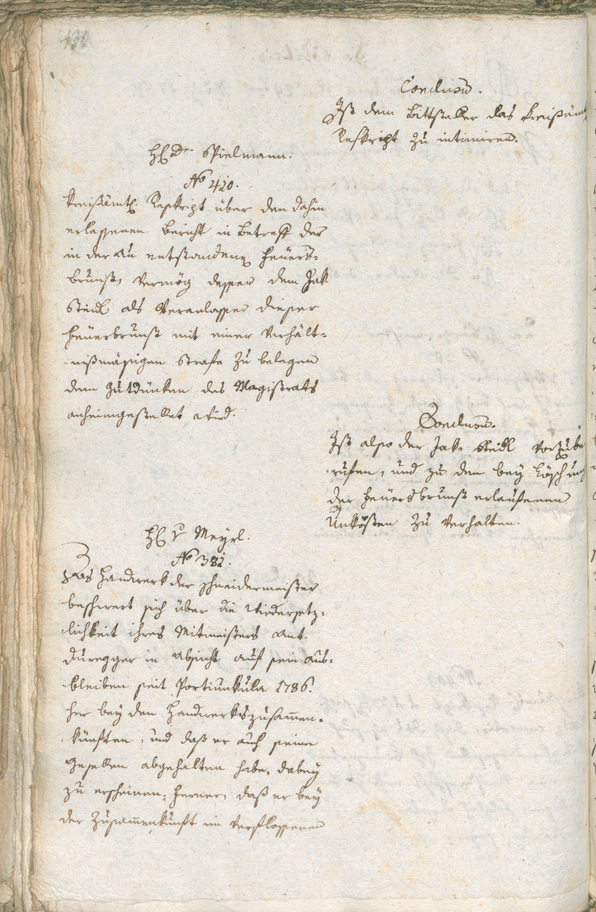 130
Conclusum.
Ist dem Bittsteller das Kreißämt
Reskript zu intimiren.
H Dr. Spielmann.
No 420.
Kreißämtl. Reskript über den dahin
erlassenen Bericht in Betreff der
in der Au entstandenen Feuers-
brunst, vermög dessen dem Jak.
Seidl als Veranlasser dieser
Feuerbrunst mit einer verhält-
nißmäßigen Strafe zu belegen
dem Gutdünken des Magistrats
anheimgestellet wird.
Conclusum.
Ist also der Jak. Seidl vorzube
rufen, und zu den bey Löschung
der Feuersbrunst erlaufenen
Unkösten zu verhalten.
H Meyrl.
No 382.
Das Handwerk der Schneidermeister
beschwert sich über die Widersetz-
lichkeit ihres Mitmeisters Ant.
Duregger in Absicht auf sein aus-
bleiben seit Portiunkula 1786.
her bey den Handwerkszusammen-
künften, und daß er auch seine
Gesellen abgehalten habe, dabey
zu erscheinen, ferner, daß er bey
der Zusammenkunft im verflossenen